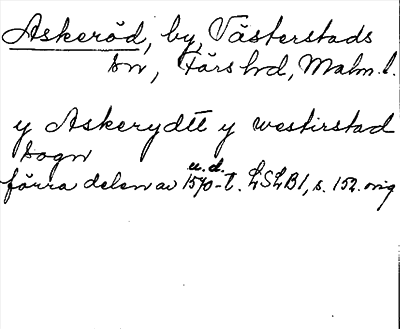 Askeröd, by, Västerstads
sn, Färs hd, Malm. l.
y Askerydtt y westirstad
sogn
u. d.
förra delen av 1570-t. LSLB1, s. 152. orig